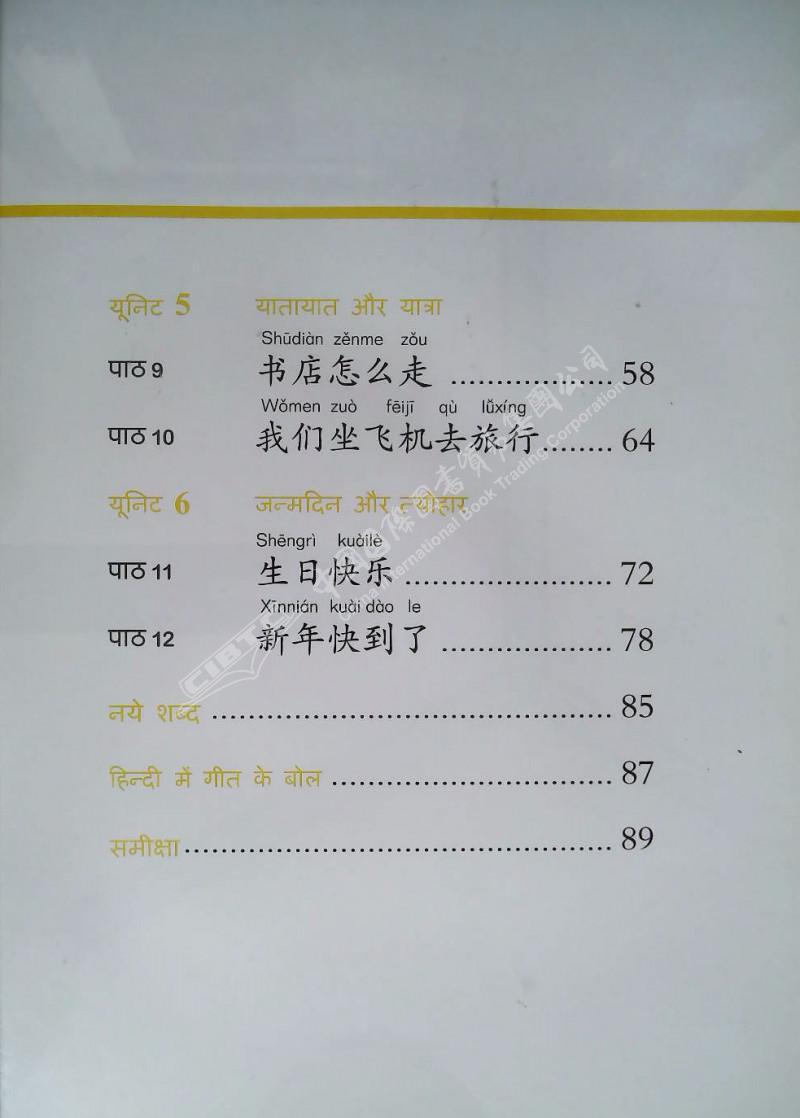 यूनिट 5 यातायात और यात्रा
Shūdiàn zěnme zǒu
पाठ 9 书店怎么走 .................. 58
Wǒmen zuò fēijī qù lǚxíng
पाठ 10 我们坐飞机去旅行........ 64
यूनिट 6 जन्मदिन और त्यौहार
Shēngrì kuàilè
पाठ 11 生日快乐....................... 72
Xīnnián kuài dào le
पाठ 12 新年快到了 ................... 78
नये शब्द ............................................ 85
हिन्दी में गीत के बोल ............................... 87
समीक्षा............................................... 89
CIBTC 中国国际图书贸易集团公司
China International Book Trading Corporation